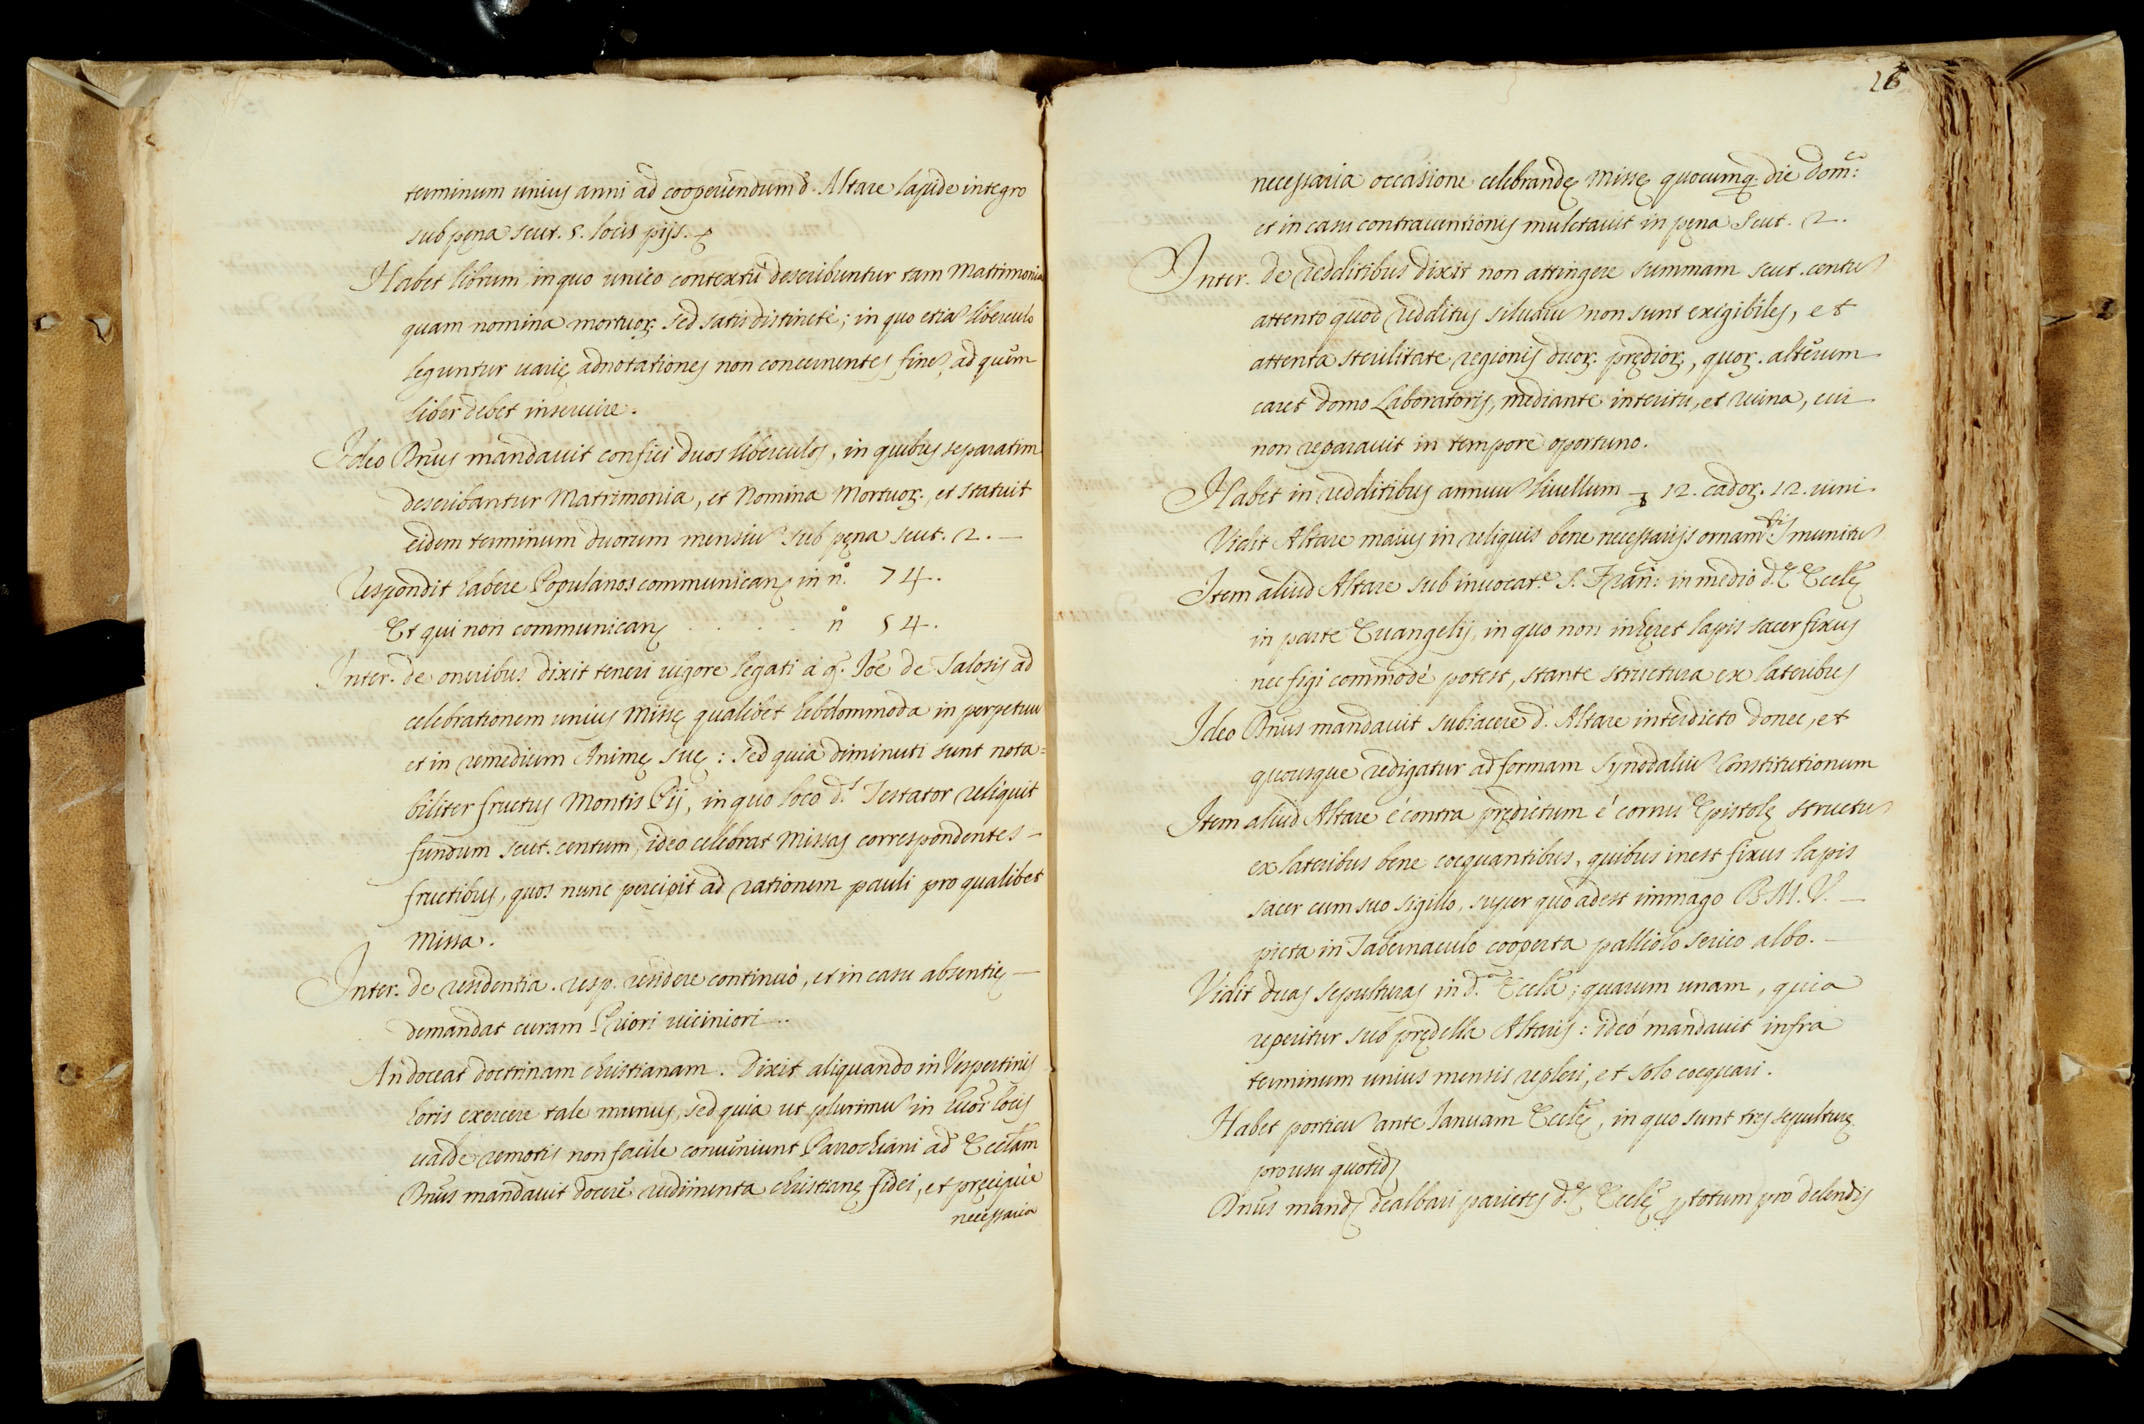 terminum unius anni ad cooperiendum d. Altare lapide integro
sub pęna scut. 5. locis pijs.
Habet librum, in quo unico contextu describuntur tam Matrimonia
quam nomina mortuor. sed satis distincte; in quo etia liberculo
leguntur varię adnotationes non concernentes fine, ad quem
liber debet inservire.
Ideo Dnus mandavit confici duos liberculos, in quibus separatim
describantur Matrimonia, et Nomina Mortuor., et statuit
eidem terminum duorum mensiu sub pęna scut. 2. —
Respondit habere Populanos communican. in n.º 74.
Et qui non communican. . . . . . nº 54.
Inter. de oneribus dixit teneri vigore legati à q. Ioe de Talosis ad
celebrationem unius Missę qualibet hebdommoda in perpetuu
et in remedium Animę suę: sed quia diminuti sunt nota=
biliter fructus Montis Pij, in quo loco d.s Testator reliquit
fundum scut. centum, ideo celebrat Missas correspondentes —
fructibus, quos nunc percipit ad rationem pauli pro qualibet
Missa.
Inter. de residentia. resp. residere continuò, et in casu absentię —
demandat curam Priori viciniori..
An doceat doctrinam christianam. Dixit aliquando in Vespertinis
horis exercere tale munus, sed quia ut plurimu in huor locis
valde remotis non facile conveniunt Parrochiani ad Ecclam
Dnus mandavit docere rudimenta christianę fidei, et pręcipuè
necessaria
26
necessaria occasione celebrandę Missę quocumq. die domca:
et in casu contraventionis mulctavit in pęna Scut. 2.
Inter. de redditibus dixit non attingere summam scut. centu
attento quod redditus siluaru non sunt exigibiles, et
attenta sterilitate regionis duor. prędior., quor. alterum
caret domo Laboratoris, mediante interitu, et ruina, cui
non reparavit in tempore oportuno.
Habet in redditibus annuu livellum 12. cador. 12. vini.
Vidit Altare maius in reliquis bene necessarijs ornamtis munitu
Item aliud Altare sub invocat.e S. Franci: in medio d.ę Ecclę
in parte Evangelij, in quo non inhęret lapis sacer fixus
nec figi commodè potest, stante structura ex lateribus
Ideo Dnus mandavit subiacere d. Altare interdicto donec, et
quousque redigatur ad formam Synodaliu Constitutionum
Item aliud Altare è contra prędictum è cornu Epistolę structu
ex lateribus bene coequantibus, quibus inest fixus lapis
sacer cum suo sigillo, super quo adest immago B. M. V. —
picta in Tabernaculo cooperta palliolo serico albo. —
Vidit duas sepulturas in d.a Eccla; quarum unam, quia
reperitur sub prędella Altaris: ideò mandavit infra
terminum unius mensis repleri, et solo coequari.
Habet porticu ante Ianuam Ecclę, in quo sunt tres sepulturę
pro usu quotid.
Dnus mand. dealbari parietes d.ę Ecclę totum pro delendis